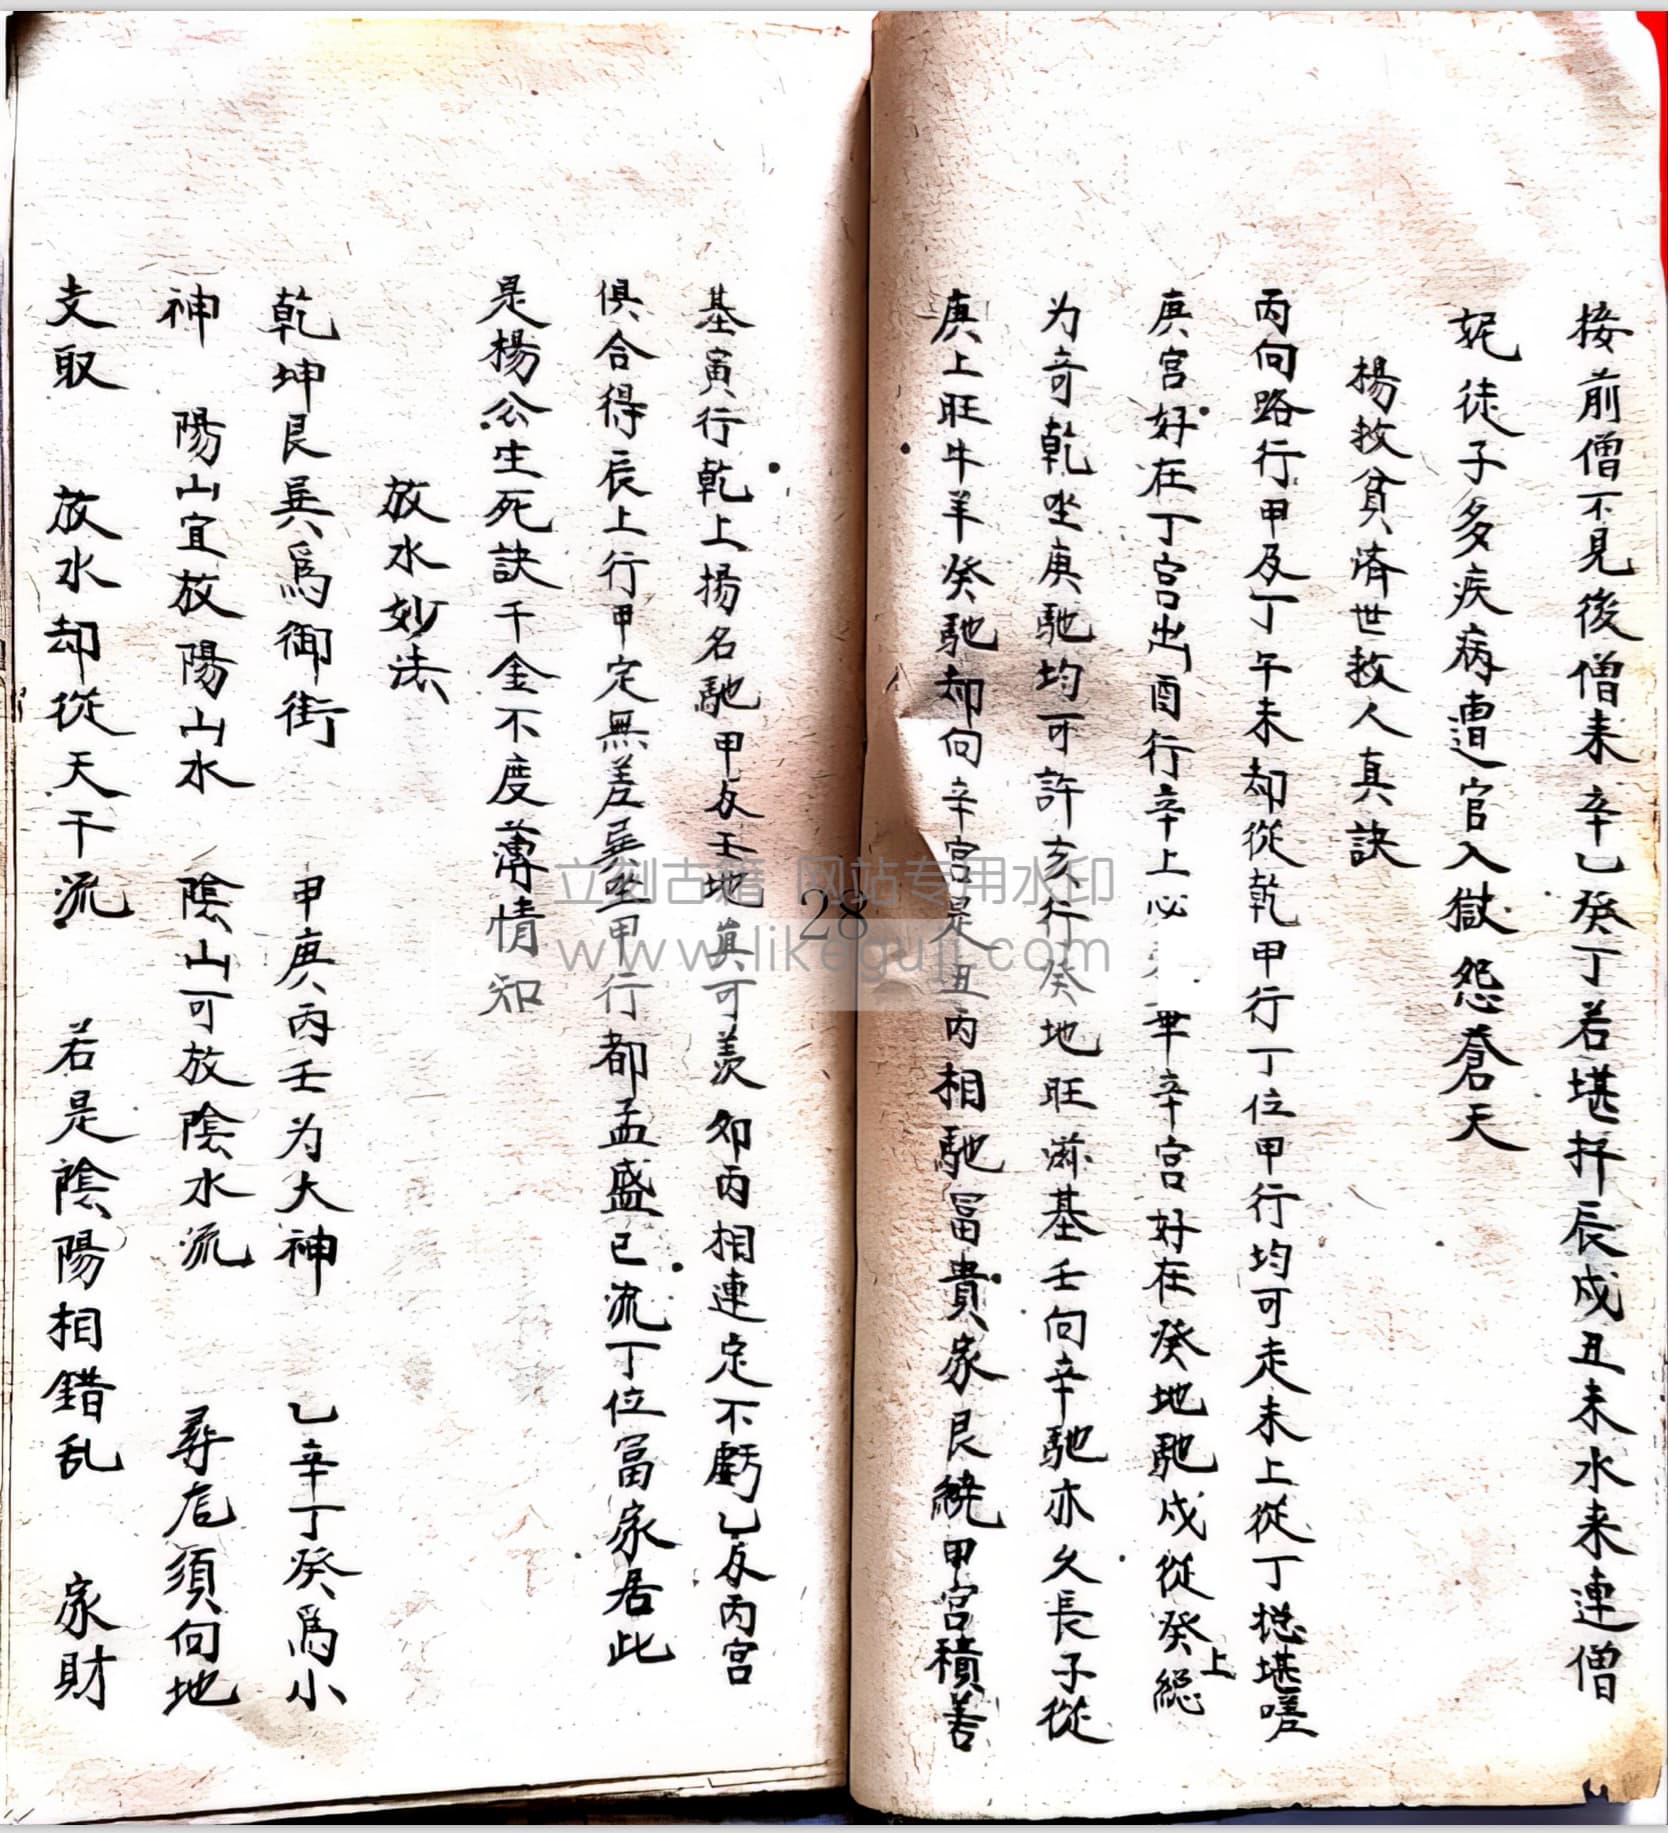 接前僧不見後僧来辛乙癸丁若堪抨辰戍丑未水来連僧
妮徒子多疾病遭官入獄怨蒼天
楊救貧濟世救人真訣
丙向路行甲及丁午未却從乾甲行丁位甲行均可走未上從丁揔堪嗟
庚宫好在丁宫出酉行辛上必 辛宫好在癸地馳戍從癸上總
为奇乾坐庚馳均可許亥行癸地旺滋基壬向辛馳亦久長子從
庚上旺牛羊癸馳却向辛宫是丑丙相馳冨貴家艮繞甲宫積善
基寅行乾上揚名馳甲反壬地真可羡夘丙相連定不虧乙反丙宫
俱合得辰上行甲定無差巽坐甲行都孟盛巳流丁位冨家居此
是楊公生死訣千金不度薄情知
放水妙法
乾坤艮巽爲御街 甲庚丙壬为大神 乙辛丁癸爲小
神 陽山宜放陽山水 陰山可放陰水流 尋龙須向地
支取 放水却從天干流 若是陰陽相錯乱 家財
28
立刻古籍 网站专用水印
www.likeguji.com